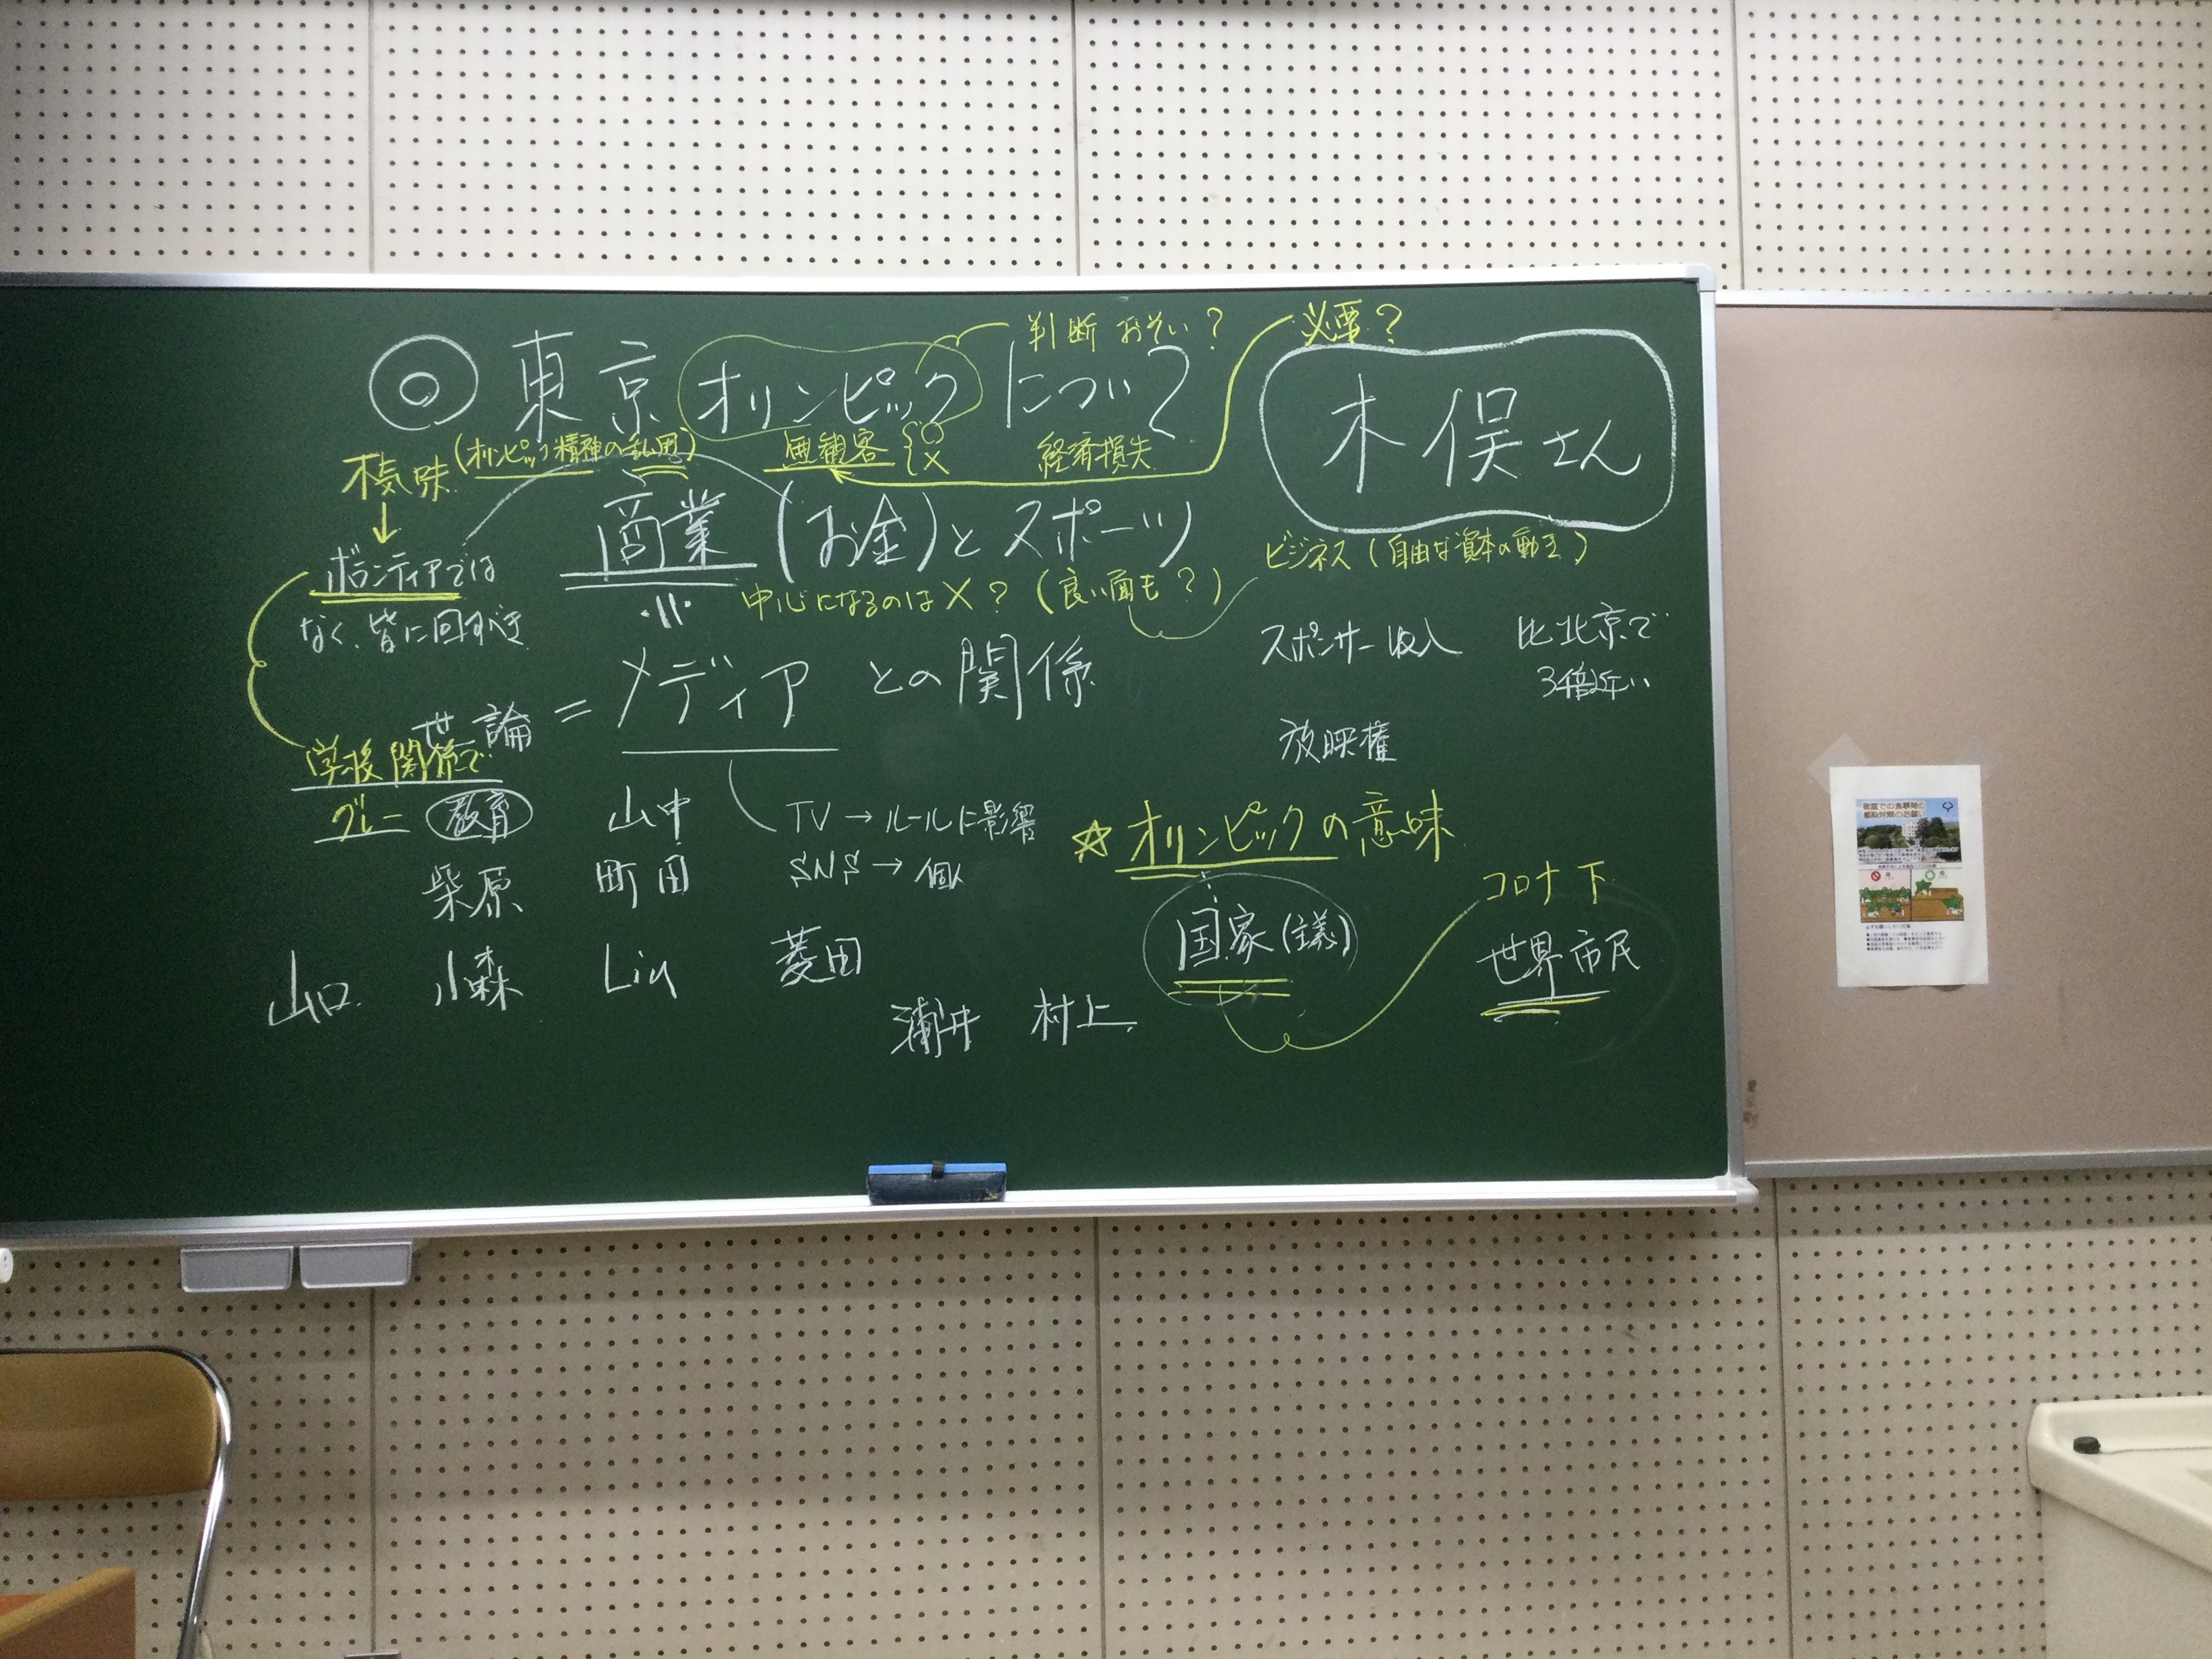 判断 おそい？ 必要？
◎ 東京オリンピックについて
木俣さん
(オリンピック精神の乱用) 無観客 {○ × 経済損失
商業(お金)とスポーツ
ビジネス(自由な資本の動き)
中心になるのは×？(良い面も？)
ボランティアでは
なく、皆に回すべき
スポンサー収入 比北京で
3倍近い
世論 = メディアとの関係
放映権
学校関係で
グレー 教育
山中
TV→ルールに影響
☆オリンピックの意味
柴原 町田
SNS→個人
コロナ下
国家(主義)
世界市民
山口 小森 Liu 菱田
浦井 村上